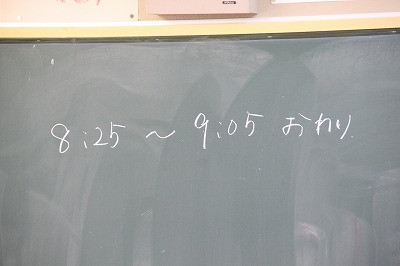 8:25 ～ 9:05 おわり